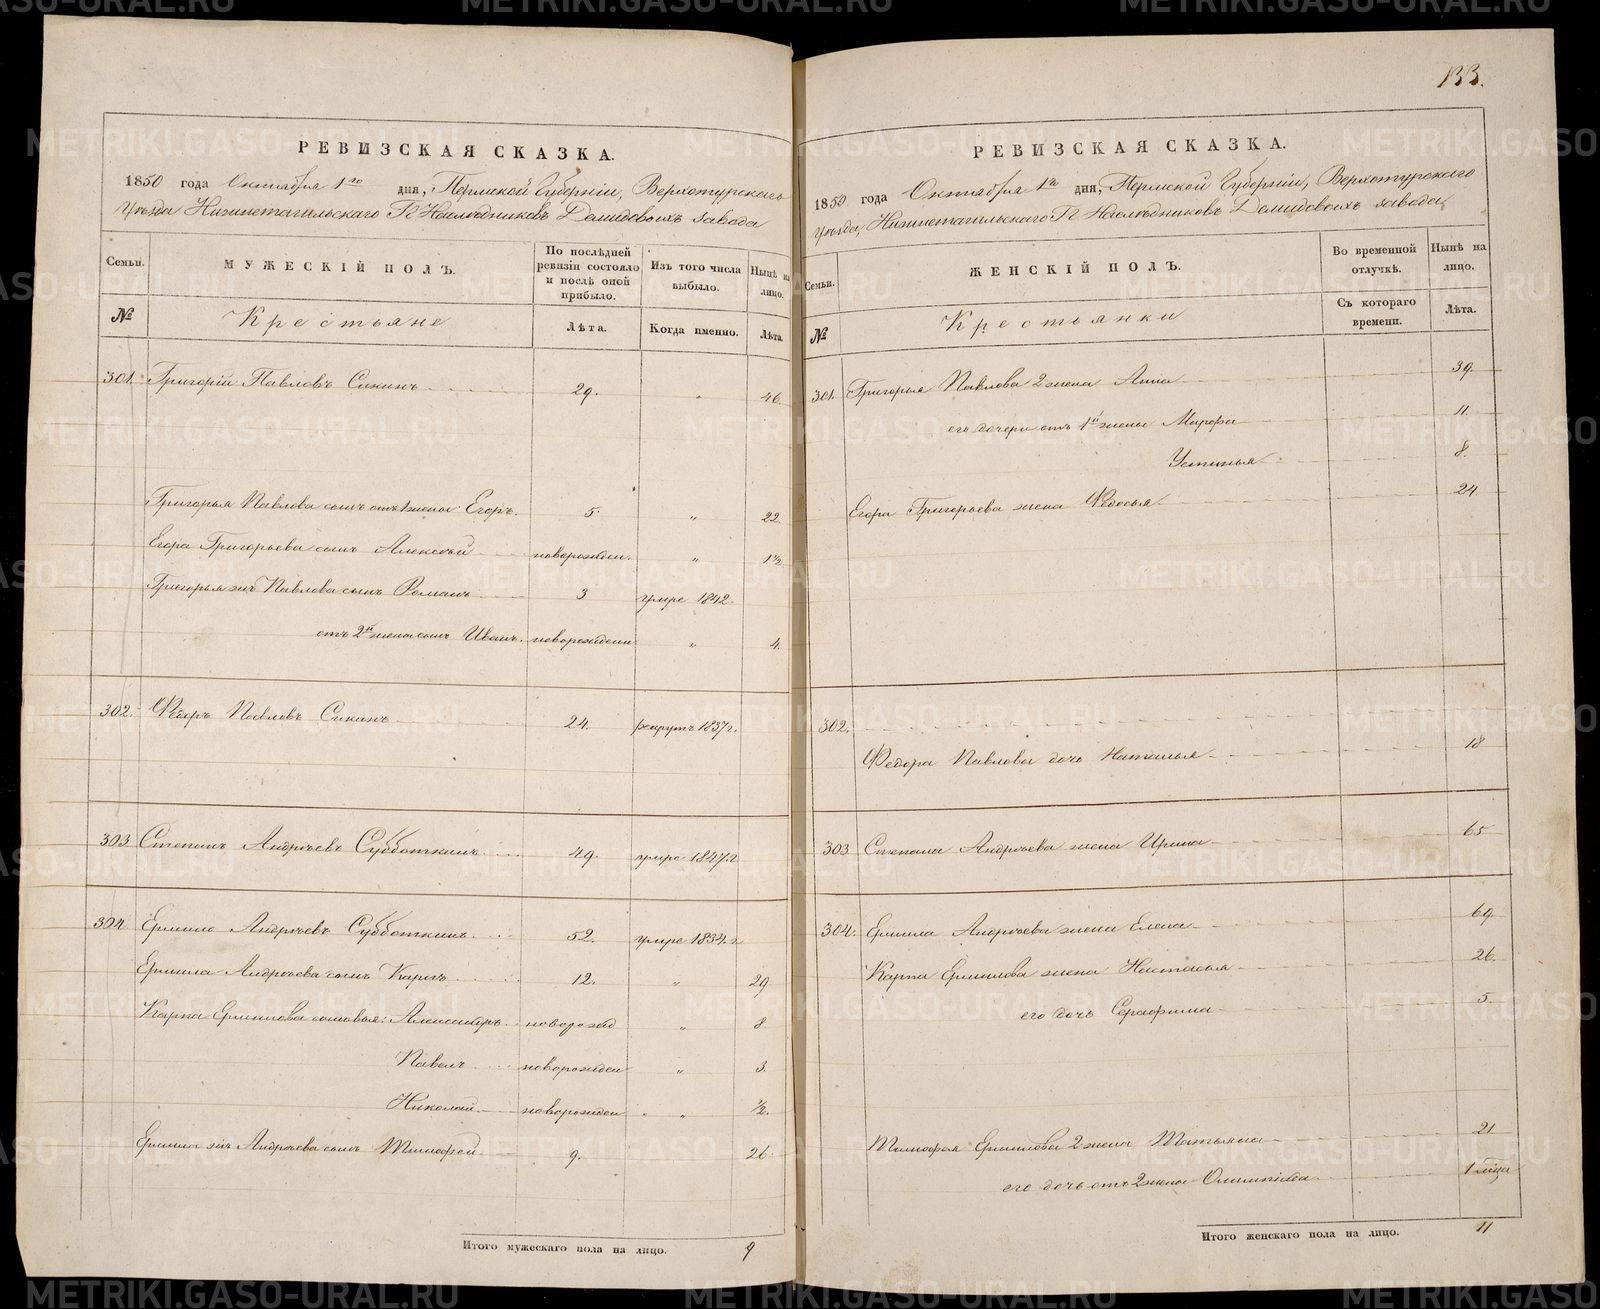 133.
РЕВИЗСКАЯ СКАЗКА.
1850 года Октября 1го дня, Пермской Губерніи, Верхотурскаго
Уѣзда Нижнетагильскаго Гг. Наслѣдниковъ Демидовыхъ завода
Семьи.
МУЖЕСКІЙ ПОЛЪ.
По послѣдней ревизіи состояло и послѣ оной прибыло.
Изъ того числа выбыло.
Нынѣ на лицо.
№
Крестьяне
Лѣта.
Когда именно.
Лѣта.
301. Григорій Павловъ Сикинъ 29. " 46.
Григорья Павлова сынъ отъ 1 жены Егоръ. 5. " 22
Егора Григорьева сынъ Алексѣй новорожден. " 1½
Григорья жъ Павлова сынъ Романъ 3 умре 1842.
отъ 2й жены сынъ Иванъ. новорожденн " 4.
302. Ѳедоръ Павловъ Сикинъ 24. рекрутъ 1837 г.
303 Степанъ Андрѣевъ Субботкинъ 49. умре 1847 г
304 Ермило Андрѣевъ Субботкинъ 52. умре 1834 г
Ермила Андрѣева сынъ Карпъ 12. " 29
Карпа Ермилова сыновья: Александръ новорожд " 8.
Павелъ новорожден " 3.
Николай новорожден " " ½.
Ермила жъ Андрѣева сынъ Тимофей 9. 26
Итого мужескаго пола на лицо. 9
РЕВИЗСКАЯ СКАЗКА.
1850 года Октября 1го дня, Пермской Губерніи, Верхотурскаго
Уѣзда, Нижнетагильскаго Гг. Наслѣдниковъ Демидовыхъ завода
Семьи.
ЖЕНСКІЙ ПОЛЪ.
Во временной отлучкѣ.
Нынѣ на лицо.
№
Крестьянки
Съ котораго времени.
Лѣта.
301. Григорья Павлова 2 жена Анна 39.
его дочери отъ 1й жены Марфа 11.
Устинья 8.
Егора Григорьева жена Ѳедосья 24
302.
Ѳедора Павлова дочь Наталья 18
303 Степана Андрѣева жена Ирина 65
304. Ермила Андрѣева жена Елена 69
Карпа Ермилова жена Настасья 26.
его дочь Серафима 5
Тимофея Ермилова 2 жена Татьяна 21
его дочь отъ 2 жены Олимпіада 1 мѣсяц
Итого женскаго пола на лицо. 11
METRIKI.GASO-URAL.RU